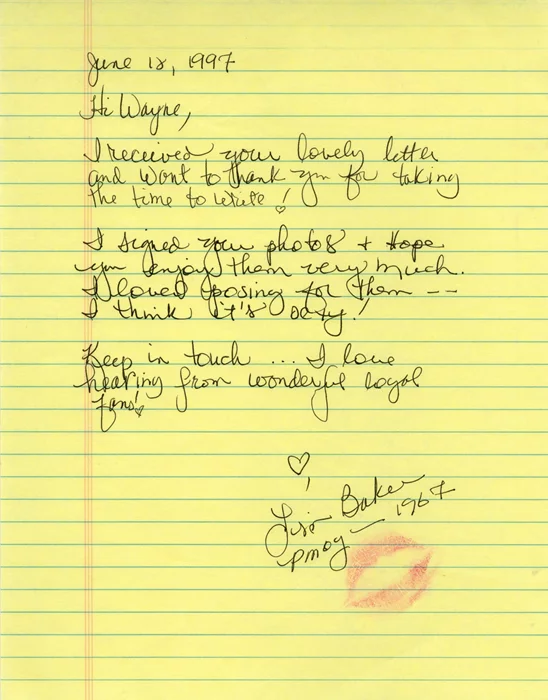 June 12, 1997
Hi Wayne,
I received your lovely letter
and want to thank you for taking
the time to write!
I signed your photos + Hope
you enjoy them very much.
I loved posing for them --
I think it's sexy!
Keep in touch ... I love
hearing from wonderful loyal
fans!
Lisa Baker
PMOY — 1967